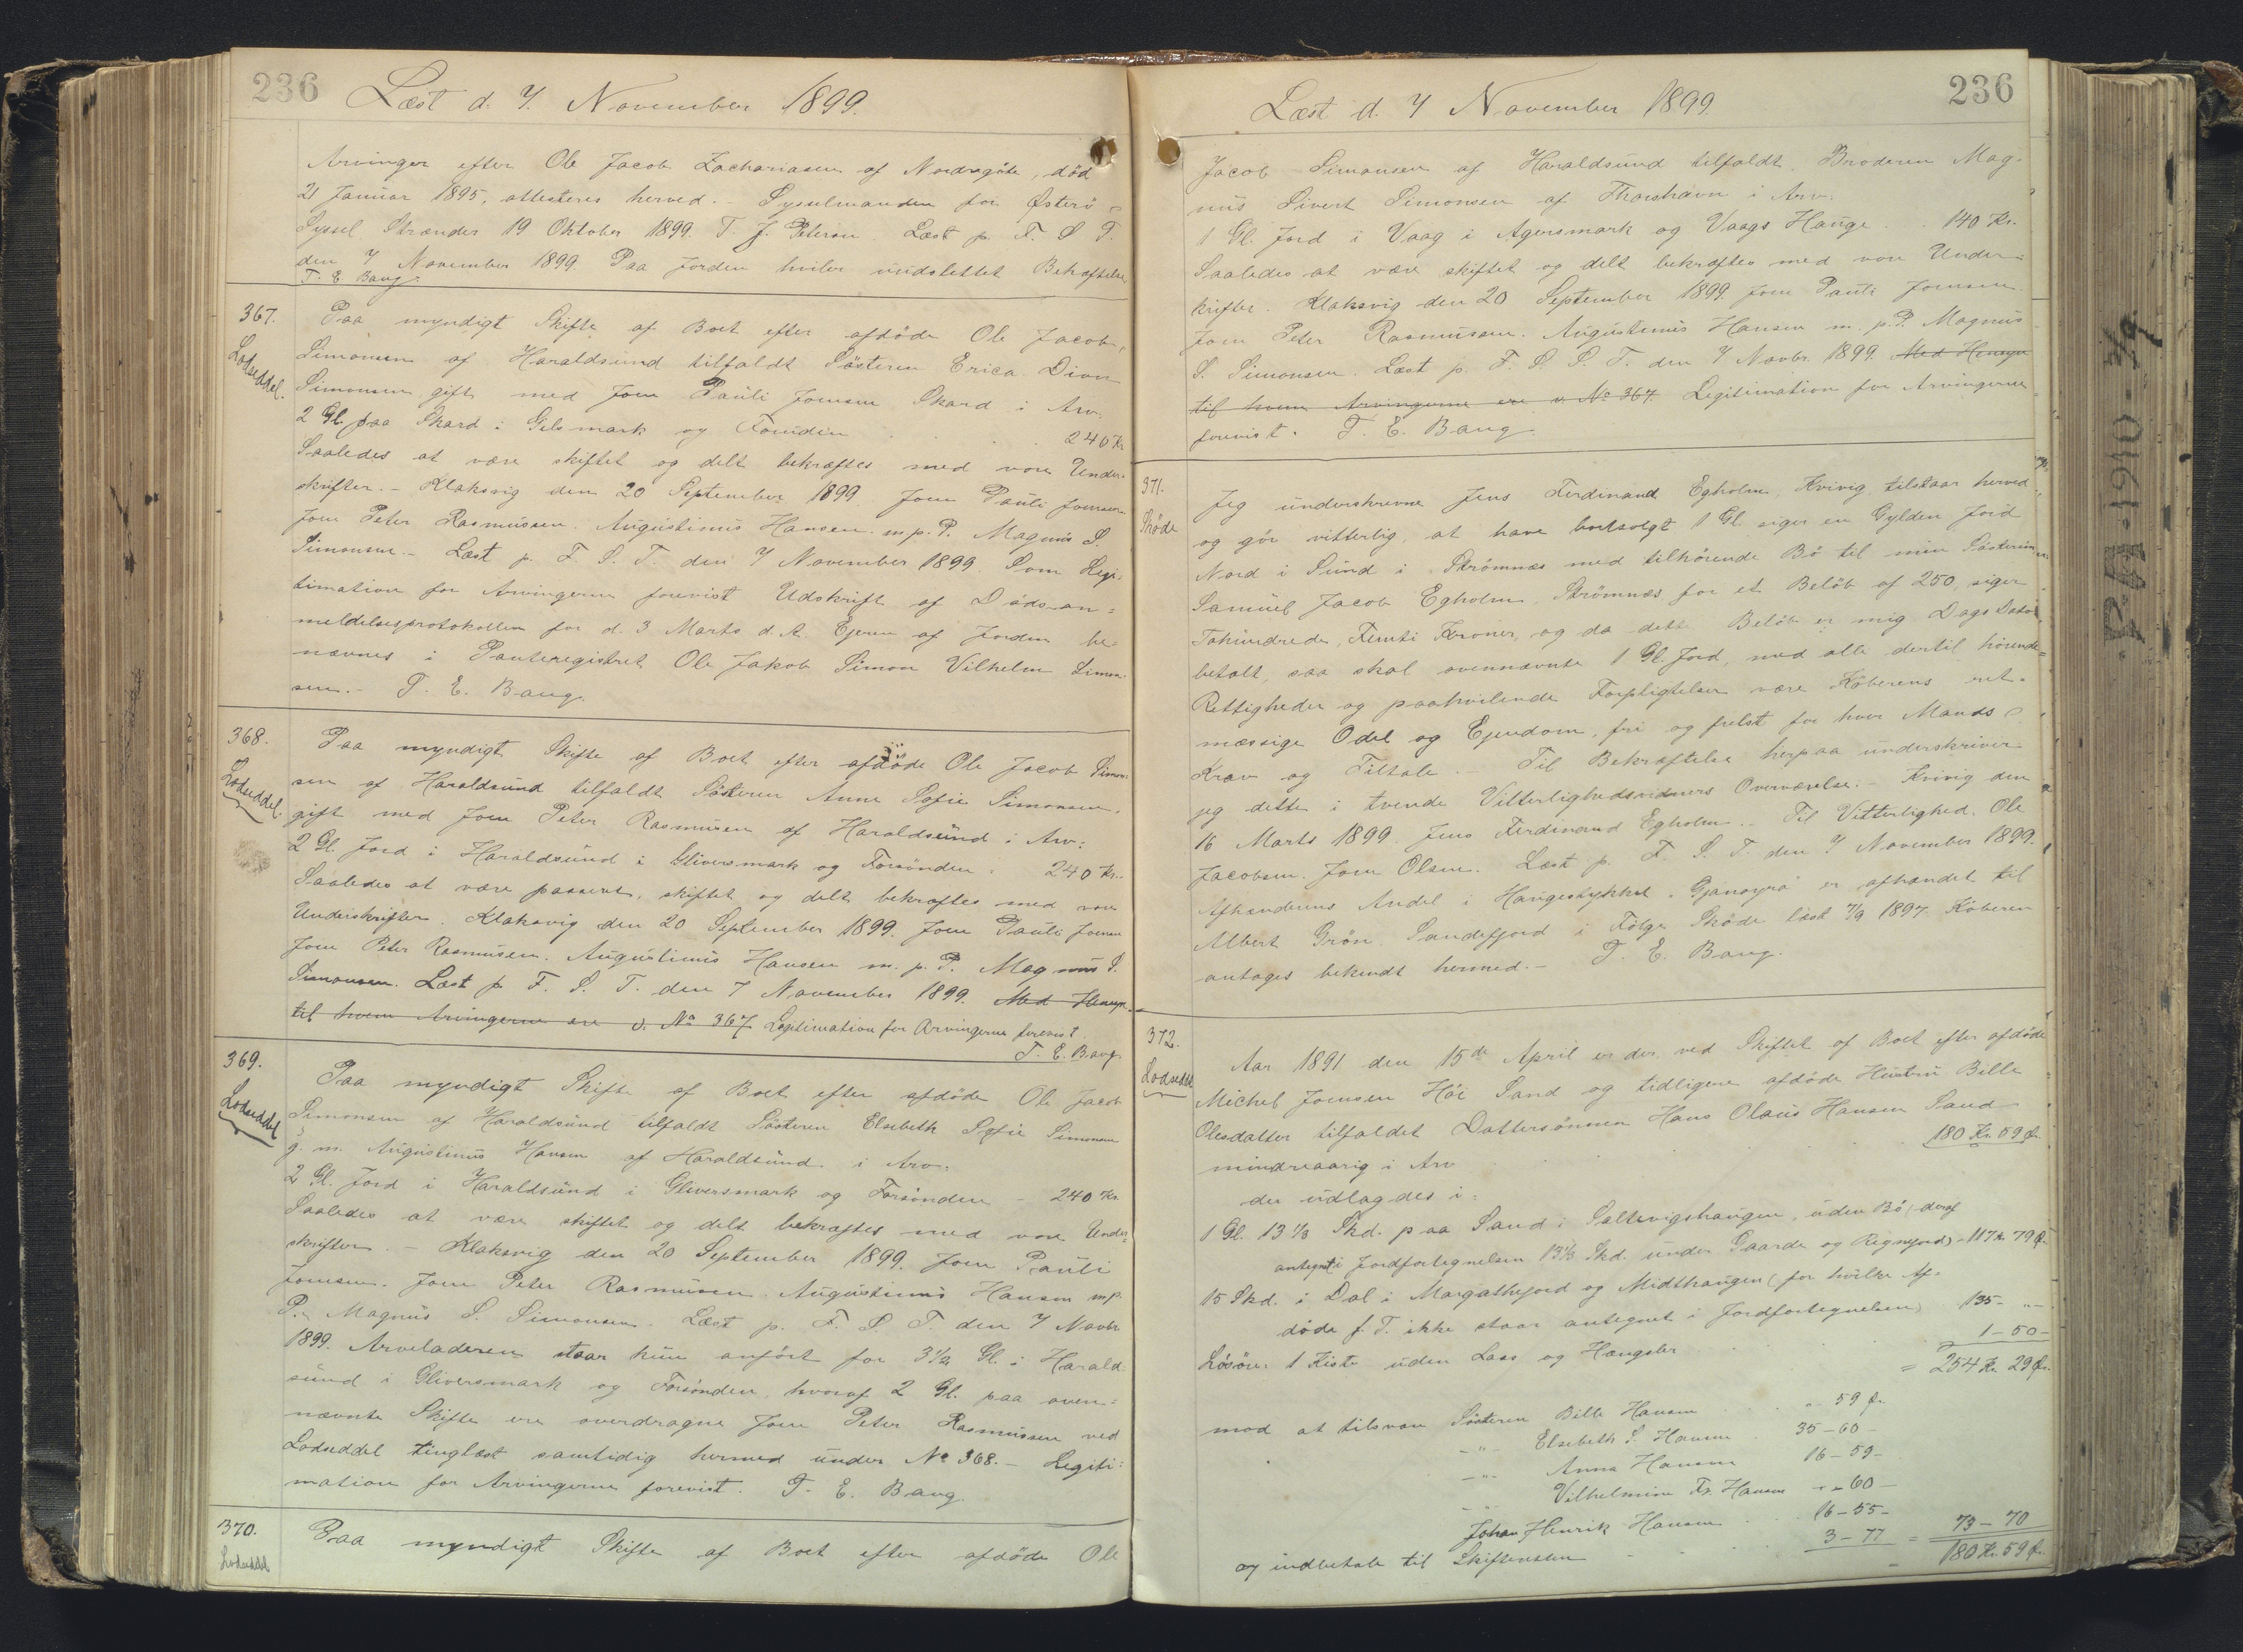 236 Læst d. 7. November 1899.
Arvinger efter Ole Jacob Zachariasen af Nordragöte, död
21 Januar 1895, attesteres herved. - Sysselmanden for Østerö
Syssel Strænder 19 Oktober 1899. T. J. Petersen. Læst p. F. S. T.
den 7 November 1899. Paa Jorden hviler uudslettet Behæftelse
T. E. Bang.
367.
Lodseddel.
Paa myndigt Skifte af Boet efter afdöde Ole Jacob
Simonsen af Haraldsund tilfaldt Sösteren Erica Dion
Simonsen gift med Joen Pauli Joensen Skard i Arv:
2 Gl. paa Skard i Gilsmark og 240 Kr
Saaledes at være skiftet og delt bekræftes med vore Under-
skrifter. - Klaksvig den 20 September 1899. Joen Pauli Joensen
Joen Peter Rasmussen. Augustinus Hansen m. p. P. Magnus S.
Simonsen. - Læst p. F. S. T. den 7 November 1899. Som Legi-
timation for Arvingerne forevist Udskrift af Dödsan=
meldelsesprotokollen for d. 3 Marts d. A. Ejeren af Jorden be=
nævnes i Panteregistret Ole Jakob Simon Vilhelm Simon-
sen. - T. E. Bang.
368.
Lodseddel.
Paa myndigt Skifte af Boet efter afdöde Ole Jacob Simon-
sen af Haraldsund tilfaldt Sösteren Anne Sofie Simonsen,
gift med Joen Peter Rasmussen af Haraldsund i Arv:
2 Gl. Jord i Haraldsund i Gliversmark og Forsönden . 240 Kr.
Saaledes at være passeret, skiftet og delt bekræftes med vore
Underskrifter. Klaksvig den 20 September 1899. Joen Pauli Joensen
Joen Peter Rasmussen. Augustinus Hansen m. p. P. Magnus S.
Simonsen. Læst p. F. S. T. den 7 November 1899. Med Hensyn
til hvem Arvingerne ere v. No 367. Legitimation for Arvingerne forevist
T. E. Bang
369.
Lodseddel
Paa myndigt Skifte af Boet efter afdöde Ole Jacob
Simonsen af Haraldsund tilfaldt Sösteren Elsebeth Sofie Simonsen
g. m. Augustinus Hansen af Haraldsund i Arv:
2 Gl. Jord i Haraldsund i Gliversmark og Forsönden - 240 Kr.
Saaledes at være skiftet og delt bekræftes med vore Under=
skrifter. - Klaksvig den 20 September 1899. Joen Pauli
Joensen. Joen Peter Rasmussen. Augustinus Hansen m p.
P. Magnus S. Simonsen. Læst p. F. S. T. den 7 Novbr
1899. Arveladeren staar kun anfört for 3½ Gl. i Harald-
sund i Gliversmark og Forsönden, hvoraf 2 Gl. paa oven=
nævnte Skifte ere overdragne Joen Peter Rasmussen ved
Lodseddel tinglæst samtidig hermed under No 368. - Legiti-
mation for Arvingerne forevist. T. E. Bang.
370.
Lodseddel
Paa myndigt Skifte af Boet efter afdöde Ole
Læst d. 7 November 1899. 236
Jacob Simonsen af Haraldsund tilfaldt Broderen Mag-
nus Sivert Simonsen af Thorshavn i Arv.
1 Gl. Jord i Vaag i Agersmark og Vaags Hauge . . 140 Kr.
Saaledes at være skiftet og delt bekræftes med vore Under=
skrifter. Klaksvig den 20 September 1899. Joen Pauli Joensen.
Joen Peter Rasmussen. Augustinus Hansen m. p. P. Magnus
S. Simonsen. Læst p. F. S. S. T. den 7 Novbr. 1899. Med Hensyn
til hvem Arvingerne ere v. No 367. Legitimation for Arvingerne
forevist. T. E. Bang
371.
Sköde
Jeg underskrevne Jens Ferdinand Egholm, Kvivig tilstaar herved
og gör vitterlig, at have bortsolgt 1 Gl. siger en Gylden Jord
Nord i Sund i Strömnæs med tilhörende Bö til min
Samuel Jacob Egholm Strömnæs for et Belöb af 250, siger
Tohundrede, Femti Kroner, og da dette Belöb er mig Dags Dato
betalt, saa skal ovennævnte 1 Gl. Jord, med alle dertil hörende=
Rettigheder og paahvilende Forpligtelser være Köberens ret-
mæssige Odel og Ejendom, fri og frelst for hver Mands
Krav og Tiltale. - Til Bekræftelse herpaa underskriver
jeg dette i tvende Vitterlighedsvidners Overværelse. - Kvivig den
16 Marts 1899. Jens Ferdinand Egholm. - Til Vitterlighed. Ole
Jacobsen. Joen Olsen. Læst p. F. S. T. den 7 November 1899.
Afhænderens Andel i Haugestykket "Gjánoyrá" er afhændet til
Albert Grön, Sandefjord i Fölge Sköde læst 7/9 1897. Köberen
antages bekendt hermed. - T. E. Bang.
372.
Lodseddel
Aar 1891 den 15de April er der ved Skiftet af Boet efter afdöde
Michel Joensen Höi Sand og tidligere afdöde Hustru Bille
Olesdatter tilfaldet Dattersönnen Hans Olaus Hansen Sand
mindreaarig i Arv 180 Kr. 59 Ø.
der udlagdes i:
1 Gl. 13⅓ Skd. paa Sand i Saltvigshaugen, uden Bö (deraf
antegnet i Jordfortegnelsen 13⅓ Skd. under Gaarde og ) = 117 Kr. 79 Ø.
15 Skd. i Dal i og Midthaugen (for hvilke Af-
döde f. T. ikke staar antegnet i Jordfortegnelsen) 135 - " -
Lösöre: 1 Kiste uden Laas og Hængsler 1 - 50 -
= 254 Kr. 29 Ø.
mod at tilsvare Sösteren Bille Hansen . . " 59 Ø.
- " - Elsebeth S. Hansen . 35 - 60 -
- " - Anna Hansen 16 - 59 -
- " - Vilhelmine Fr. Hansen " - 60 -
- " - Johan Henrik Hansen . . 16 - 55 -
og indbetale til Skifteretten 3 - 77 = 73 - 70
= 180 Kr. 59 Ø.